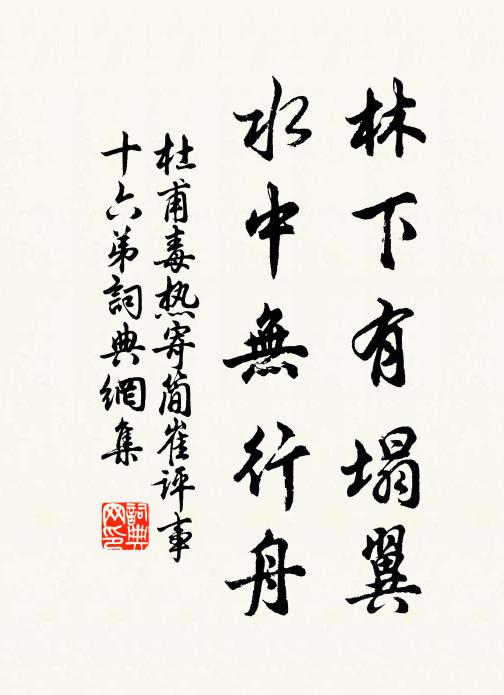 林下有塌翼
水中無行舟
杜甫毒热寄简崔评事
十六弟詞典網集
詞典
网印